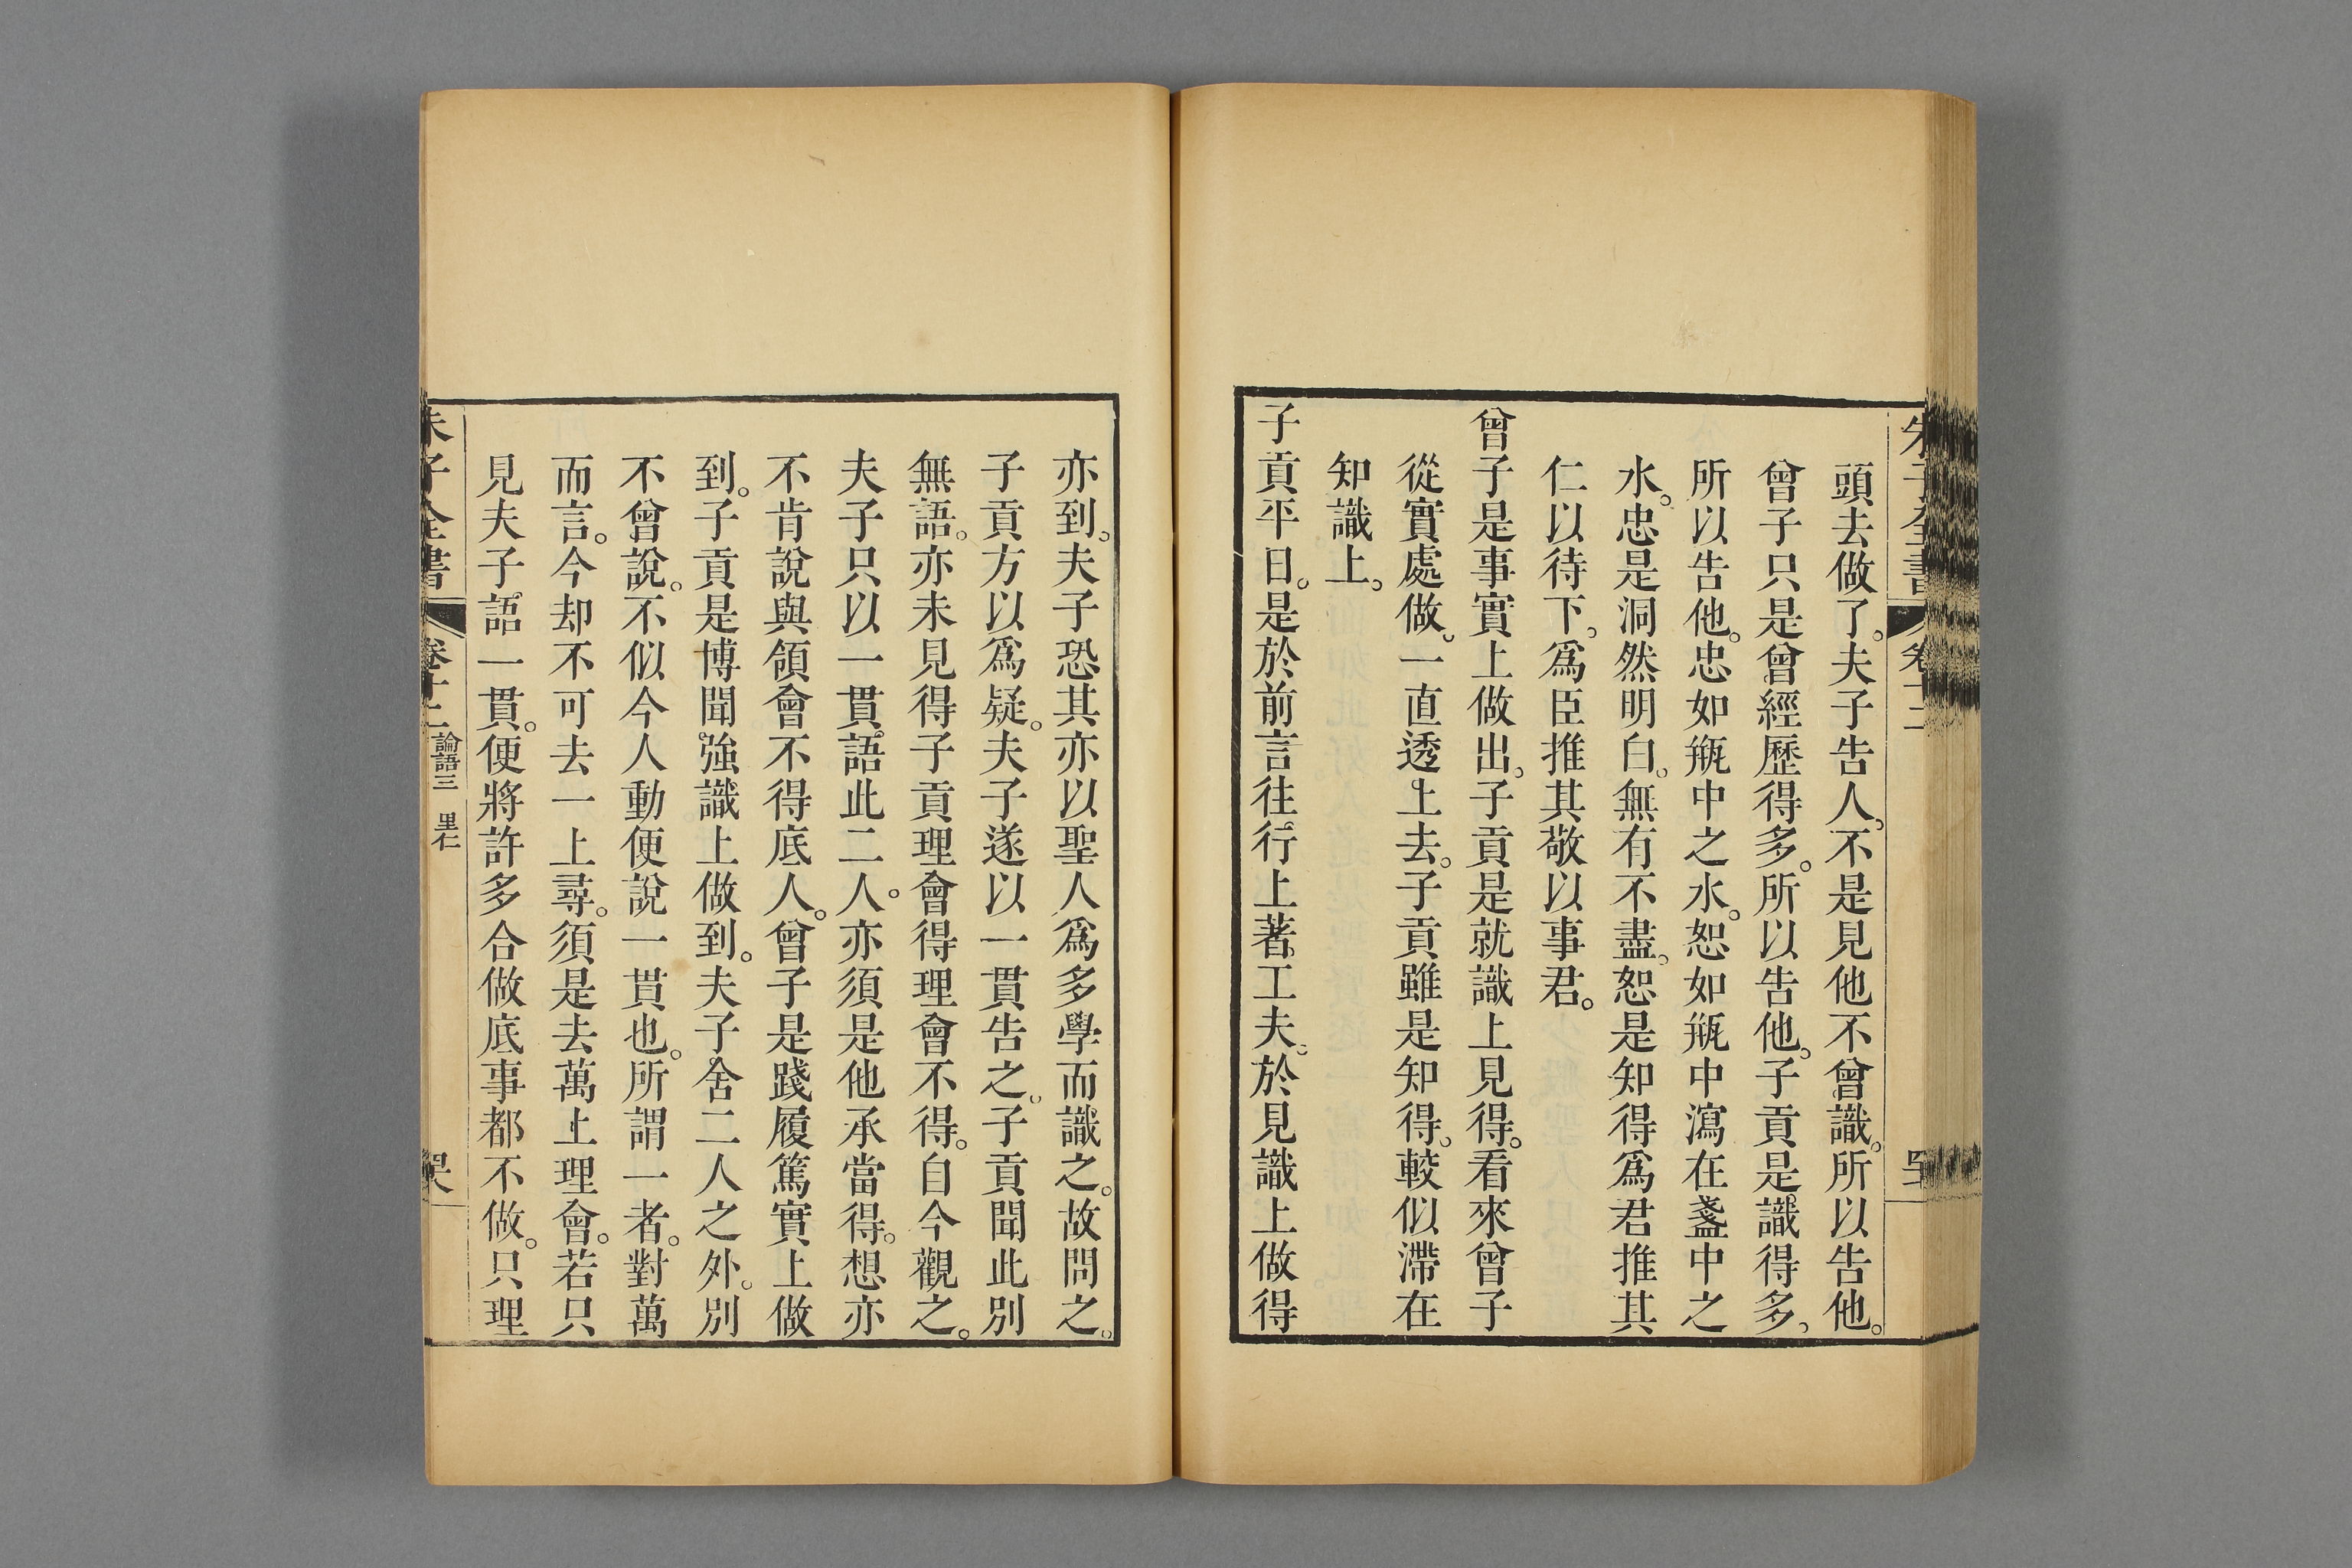 朱子全書 卷十二
頭去做了。夫子告人。不是見他不曾識。所以告他。
曾子只是曾經歷得多。所以告他。子貢是識得多。
所以告他。忠如瓶中之水。恕如瓶中瀉在盞中之
水。忠是洞然明白。無有不盡。恕是知得爲君推其
仁以待下。爲臣推其敬以事君。
曾子是事實上做出。子貢是就識上見得。看來曾子
從實處做。一直透上去。子貢雖是知得。較似滯在
知識上。
子貢平日。是於前言往行上著工夫。於見識上做得
亦到。夫子恐其亦以聖人爲多學而識之。故問之。
子貢方以爲疑。夫子遂以一貫告之。子貢聞此別
無語。亦未見得子貢理會得理會不得。自今觀之。
夫子只以一貫語此二人。亦須是他承當得。想亦
不肯說與領會不得底人。曾子是踐履篤實上做
到。子貢是博聞強識上做到。夫子舍二人之外。別
不曾說。不似今人動便說一貫也。所謂一者。對萬
而言。今却不可去一上尋。須是去萬上理會。若只
見夫子語一貫。便將許多合做底事都不做。只理
朱子全書 卷十二 論語三 里仁